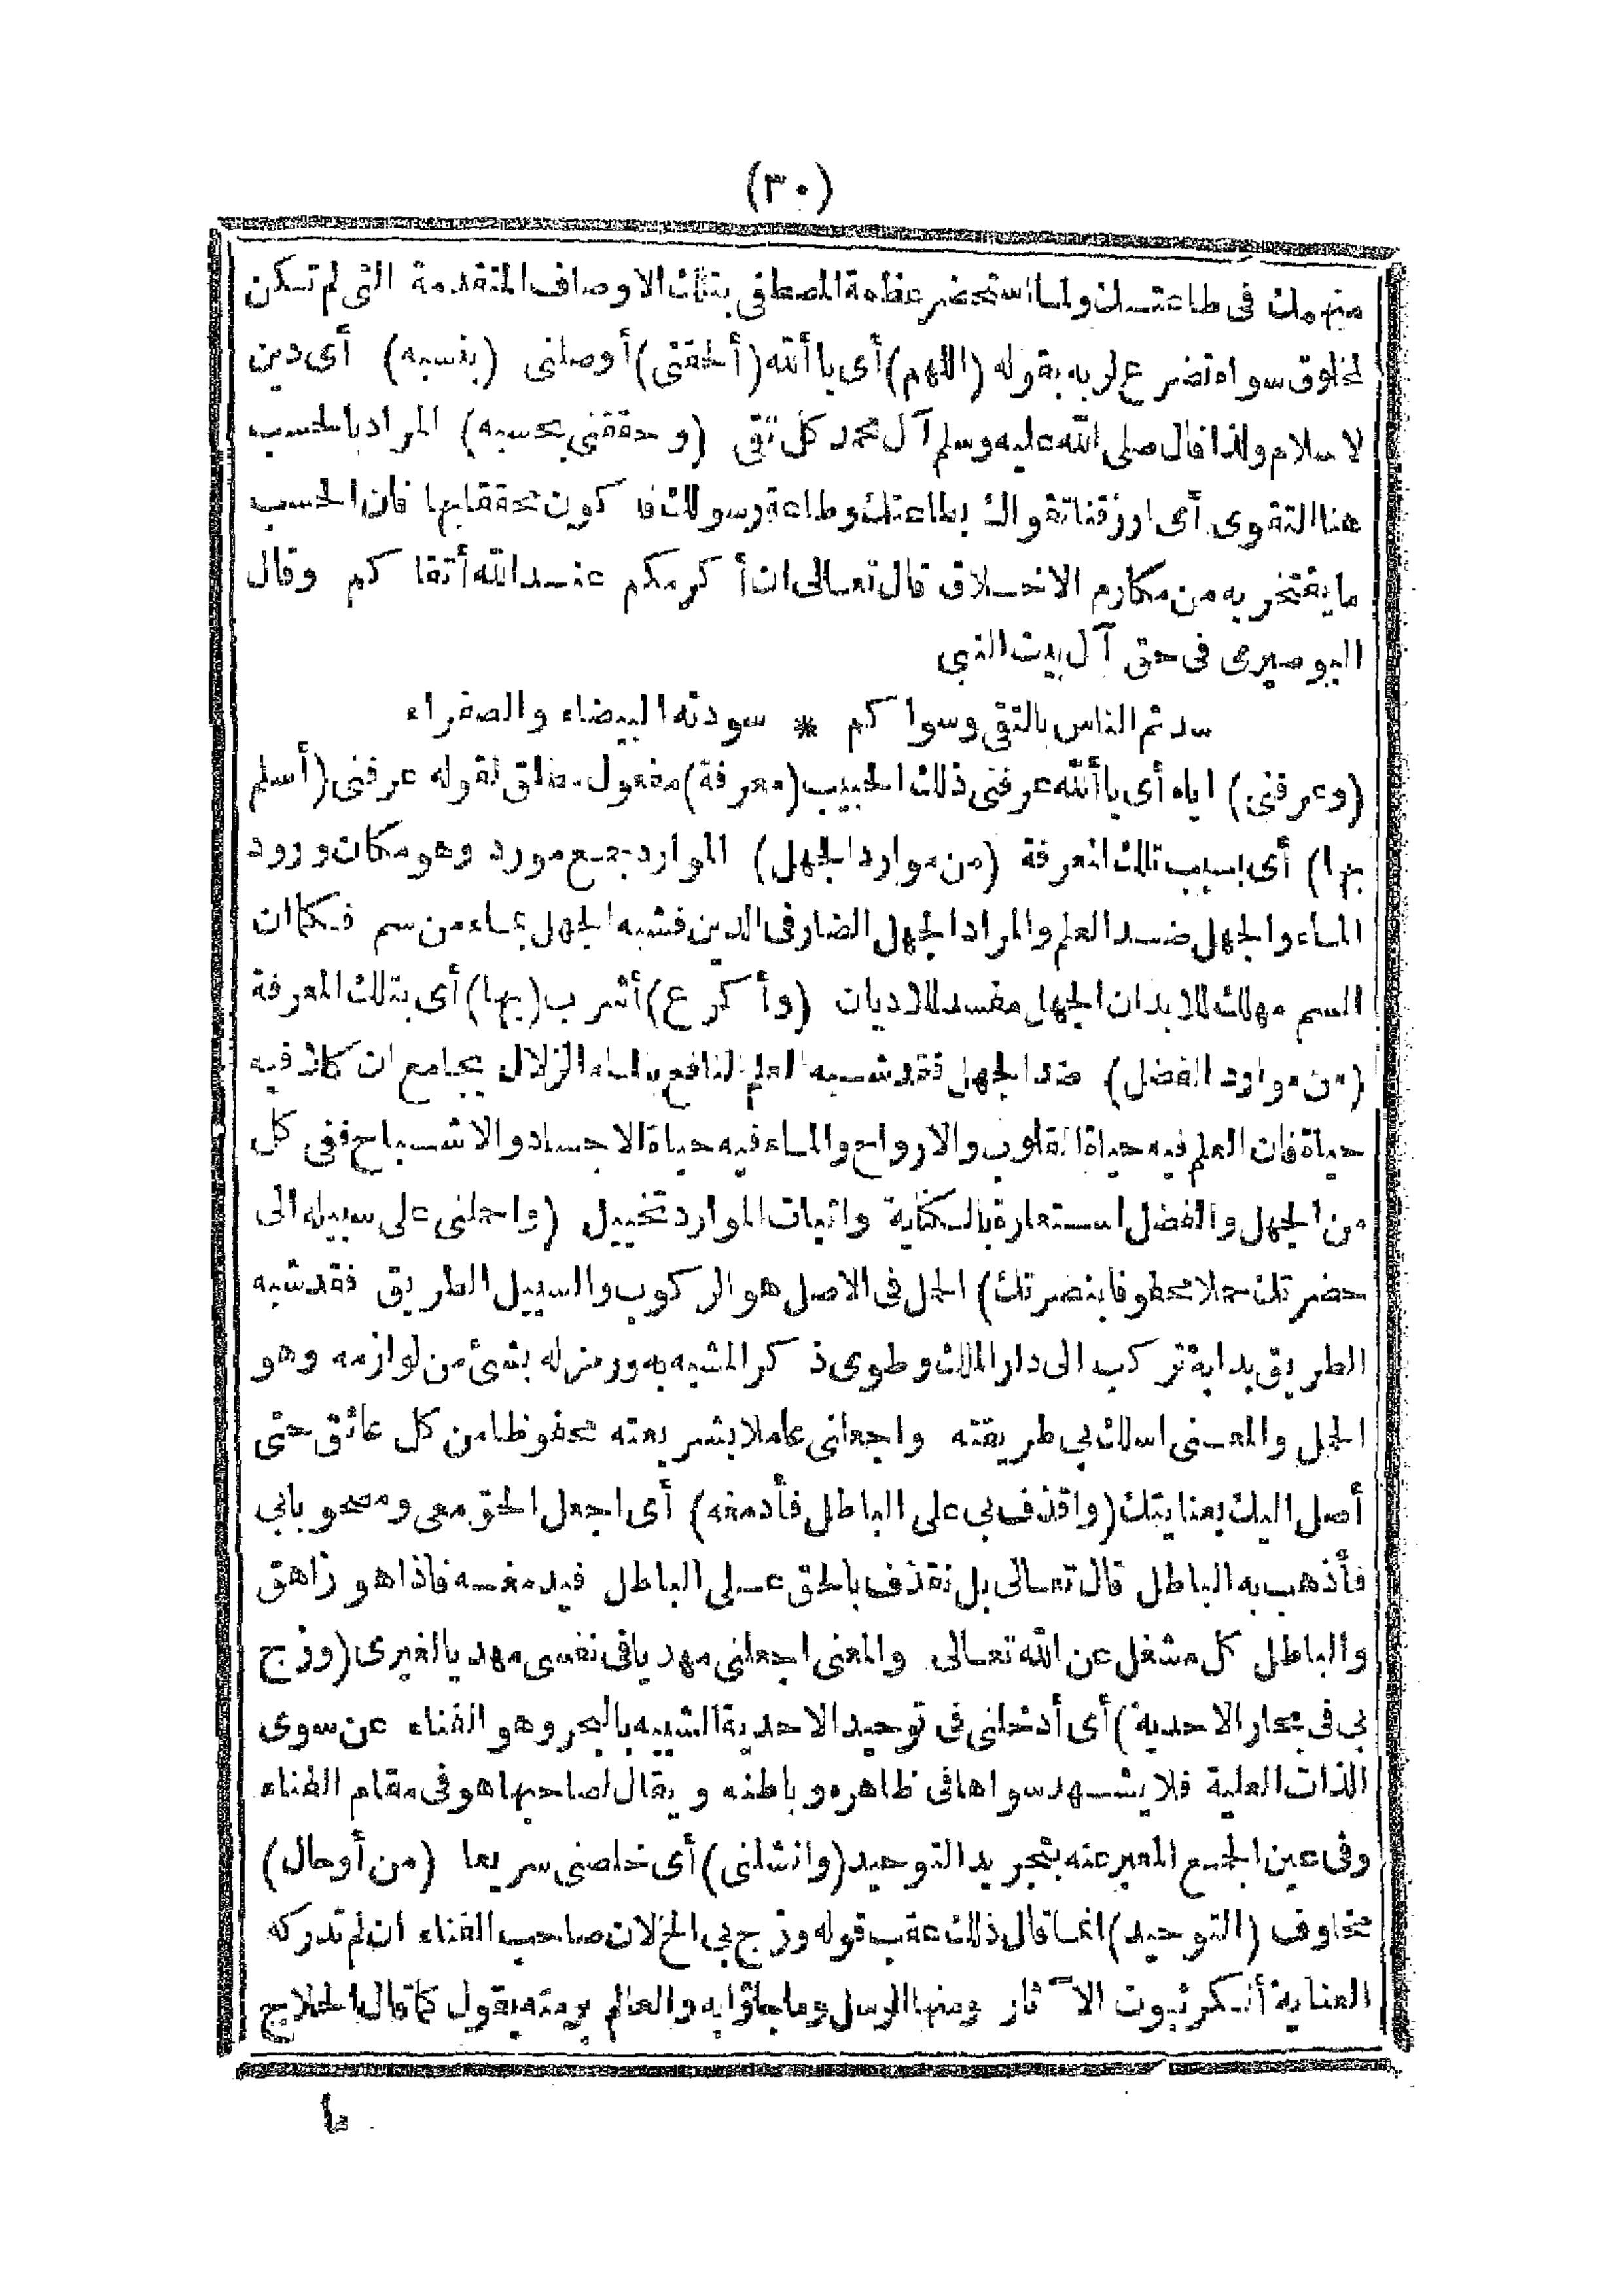 (٣٠)
منهمك فى طاعتك ولما استحضر عظمة المصطفى بتلك الاوصاف المتقدمة التى لم تكن
لمخلوق سواه تضرع لربه بقوله (اللهم) أى يا ألله (ألحقنى) أوصلنى (بنسبه) أى دين
لاسلام ولذا قال صلى الله عليه وسلم آل محمد كل تقى (وحققنى بحسبه) المراد بالحسب
هنا التقوى أى ارزقنا تقواك بطاعتك وطاعة رسولك فأكون محققا بها فان الحسب
ما يفتخر به من مكارم الاخلاق قال تعالى ان أكرمكم عند الله أتقاكم وقال
البوصيرى فى حق آل بيت النبى
سدتم الناس بالتقى وسواكم * سودته البيضاء والصفراء
(وعرفنى) اياه أى يا ألله عرفنى ذلك الحبيب (معرفة) مفعول مطلق لقوله عرفنى (أسلم
بها) أى بسبب تلك المعرفة (من موارد الجهل) الموارد جمع مورد وهو مكان ورود
الماء والجهل ضد العلم والمراد الجهل الضار فى الدين فشبه الجهل بماء من سم فكما ان
السم مهلك للابدان الجهل مفسد للاديان (وأكرع) أشرب (بها) أى بتلك المعرفة
(من موارد الفضل) ضد الجهل فقد شبه العلم النافع بالماء الزلال بجامع ان كلا فيه
حياة فان العلم فيه حياة القلوب والارواح والماء فيه حياة الاجساد والاشباح ففى كل
من الجهل والفضل استعارة بالكناية واثبات الموارد تخييل (واحملنى على سبيله الى
حضرتك حملا محفوفا بنصرتك) الحمل فى الاصل هو الركوب والسبيل الطريق فقد شبه
الطريق بدابة تركب الى دار الملك وطوى ذكر المشبه به ورمز له بشئ من لوازمه وهو
الحمل والمعنى اسلك بى طريقته واجعلنى عاملا بشريعته محفوظا من كل عائق حتى
أصل اليك بعنايتك (واقذف بى على الباطل فأدمغه) أى اجعل الحق معى ومصحوبا بى
فأذهب به الباطل قال تعالى بل نقذف بالحق على الباطل فيدمغه فاذا هو زاهق
والباطل كل مشغل عن الله تعالى والمعنى اجعلنى مهديا فى نفسى مهديا لغيرى (وزج
بى فى بحار الاحدية) أى أدخلنى فى توحيد الاحدية الشبيه بالبحر وهو الفناء عن سوى
الذات العلية فلا يشهد سواها فى ظاهره وباطنه ويقال لصاحبها هو فى مقام الفناء
وفى عين الجمع المعبر عنه بتجريد التوحيد (وانشلنى) أى خلصنى سريعا (من أوحال)
مخاوف (التوحيد) انما قال ذلك عقب قوله وزج بى الخ لان صاحب الفناء ان لم تدركه
العناية أنكر ثبوت الآثار ومنها الرسل وما جاؤا به والعالم برمته يقول كما قال الحلاج
ما